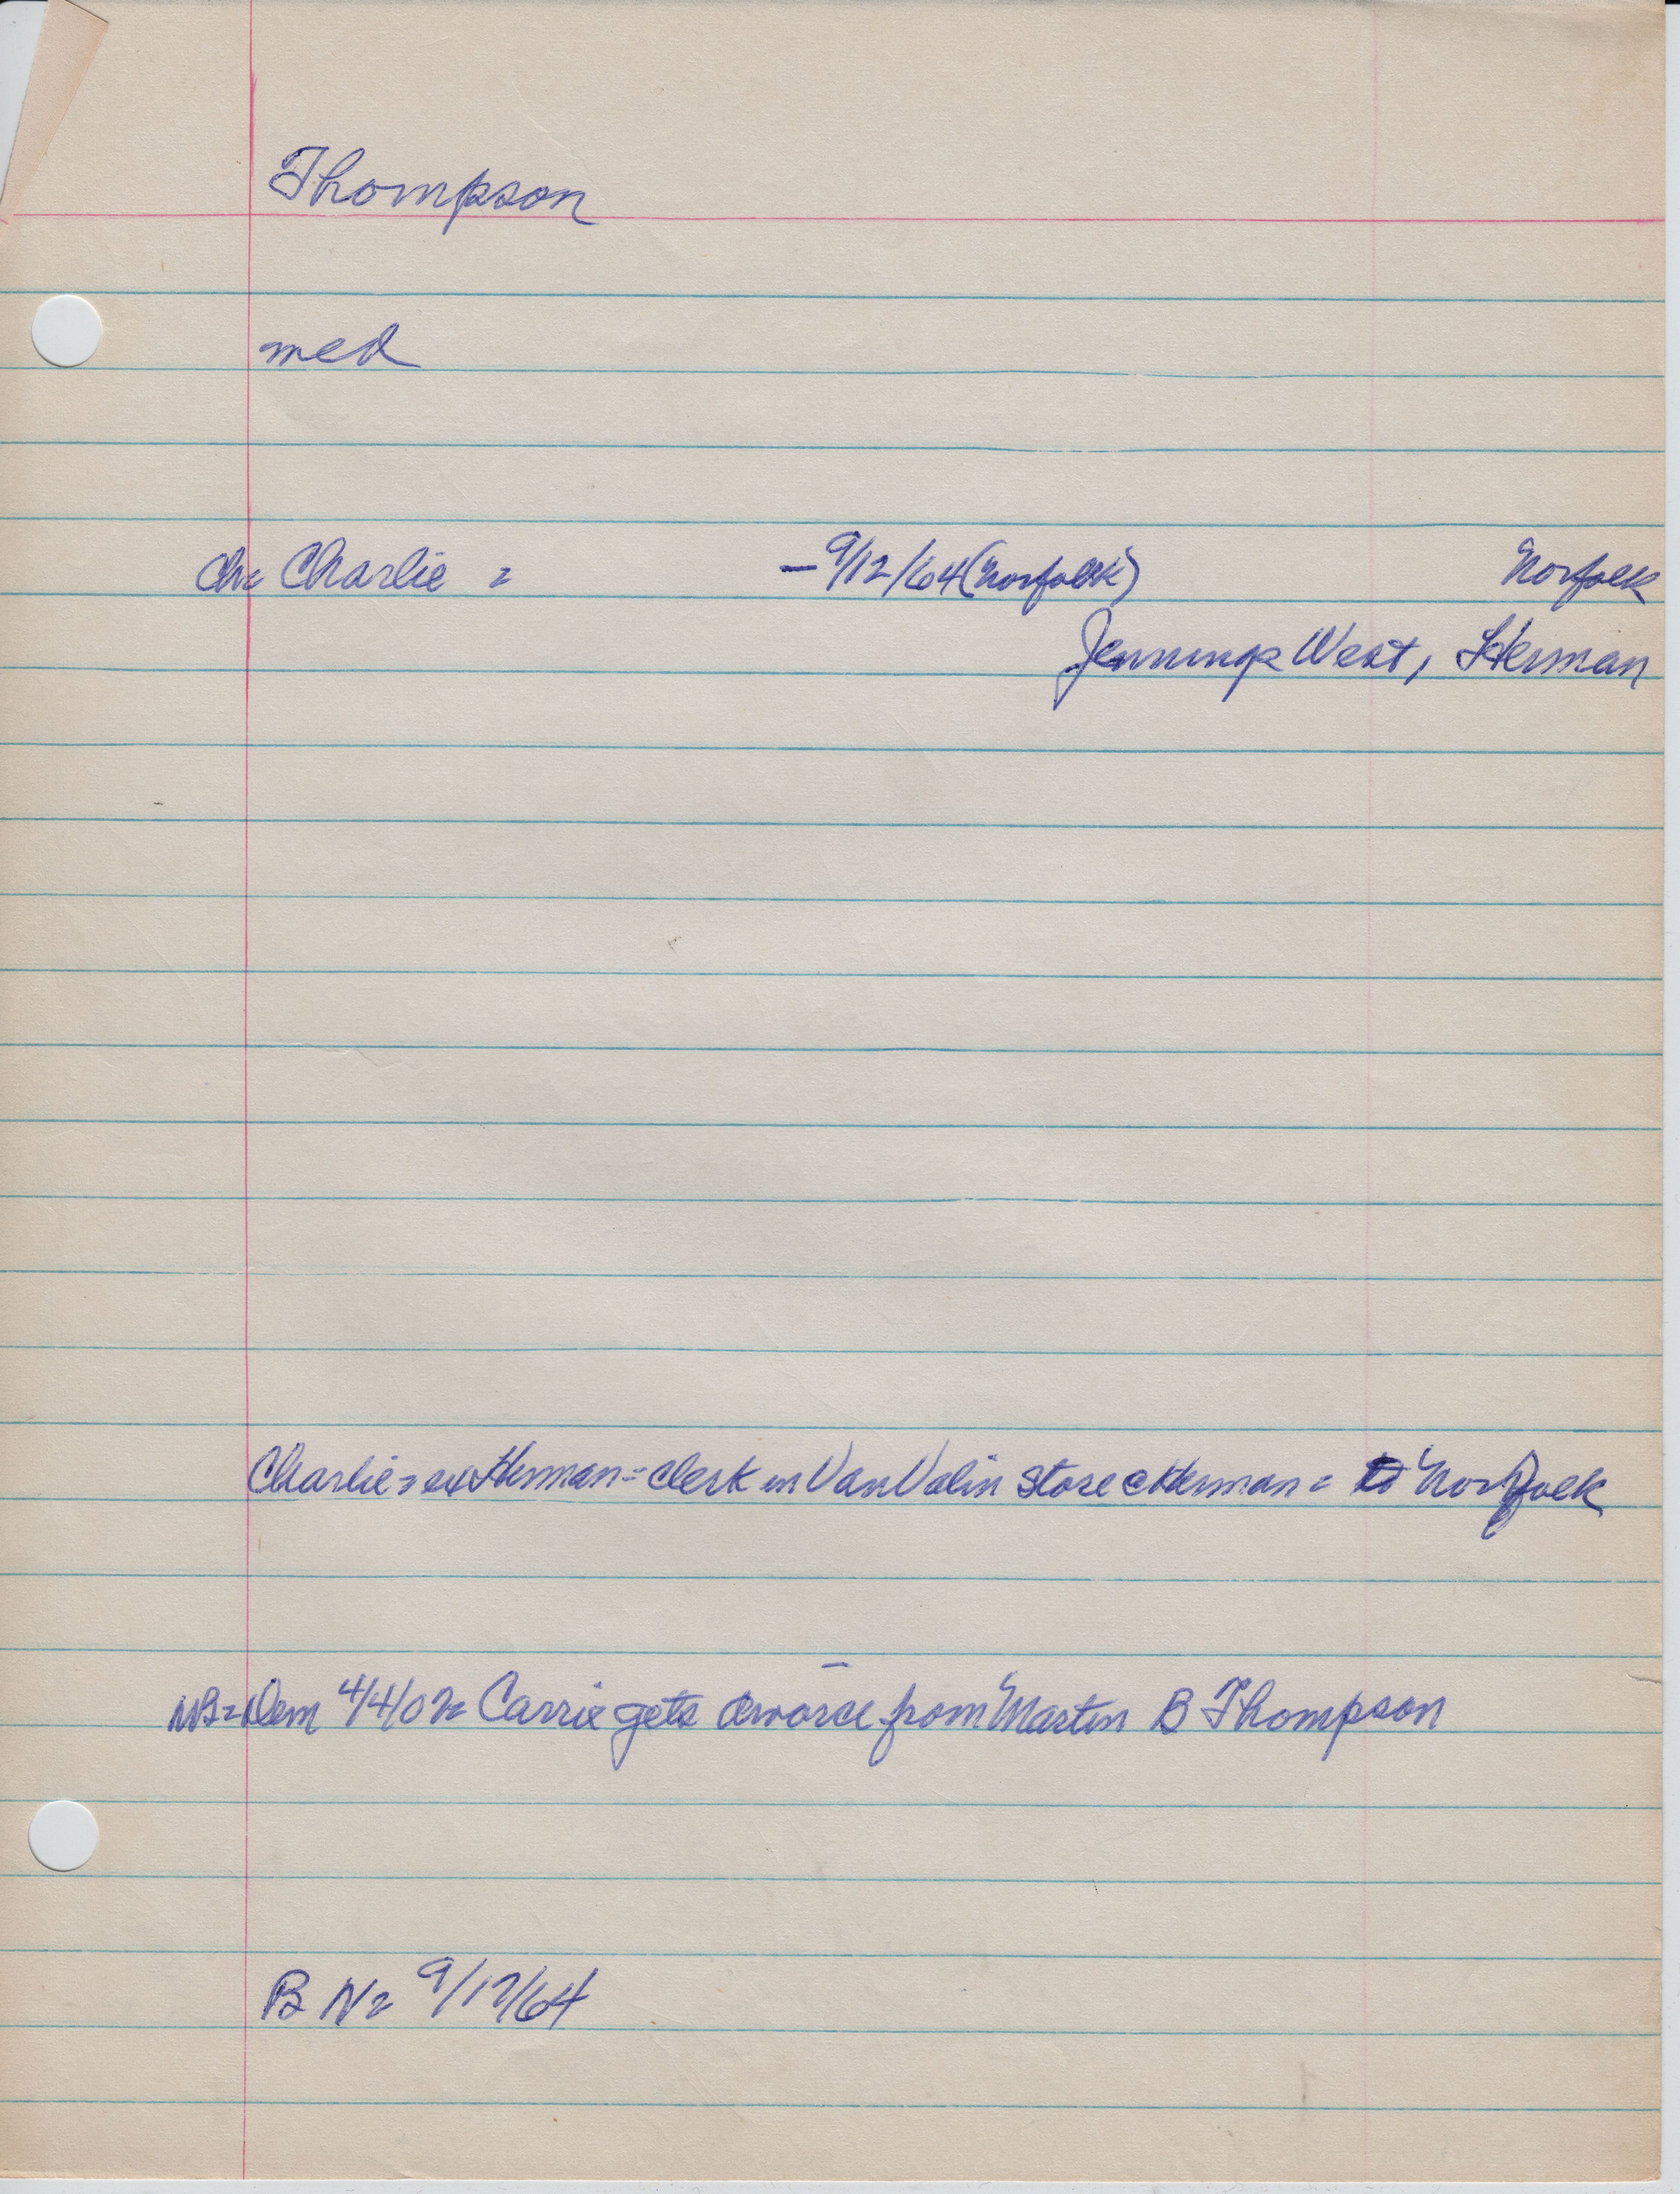 Thompson
med
Ch= Charlie = — 9/12/64 (Norfolk) Norfolk
Jennings West, Herman
Charlie = ex Herman = clerk in VanValin store c Herman = to Norfolk
NB = Dem 4/4/02 = Carrie gets divorce from Martin B Thompson
B N = 9/17/64